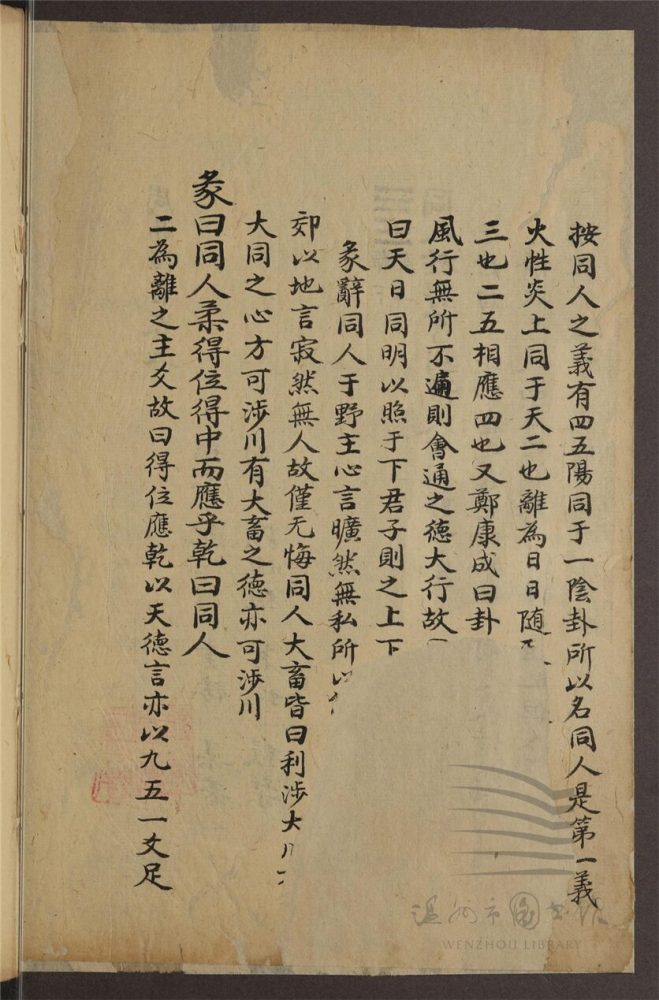 按同人之義有四五陽同于一陰卦所以名同人是第一義
火性炎上同于天二也離為日日隨
三也二五相應四也又鄭康成曰卦
風行無所不遍則會通之德大行故
曰天日同明以照于下君子則之上下
彖辭同人于野主心言曠然無私所以
郊以地言寂然無人故僅无悔同人大畜皆曰利涉大川
大同之心方可涉川有大畜之德亦可涉川
彖曰同人柔得位得中而應乎乾曰同人
二為離之主爻故曰得位應乾以天德言亦以九五一爻足
溫州市圖書館
WENZHOU LIBRARY